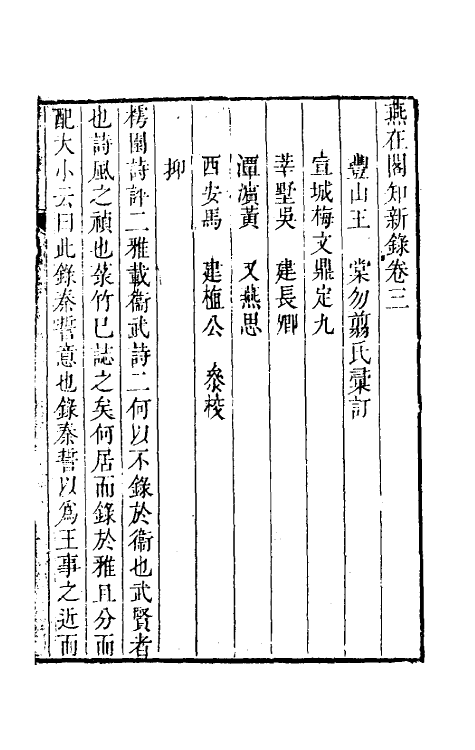 燕在閣知新錄卷三
豐山王 棠勿翦氏彙訂
宣城梅文鼎定九
莘墅吳 建長卿
潭濱黃 又燕思
西安馬 建植公 叅校
抑
樗園詩評二雅載衞武詩二何以不錄於衞也武賢者
也詩風之禎也菉竹已誌之矣何居而錄於雅且分而
配大小云曰此錄秦誓意也錄秦誓以爲王事之近而